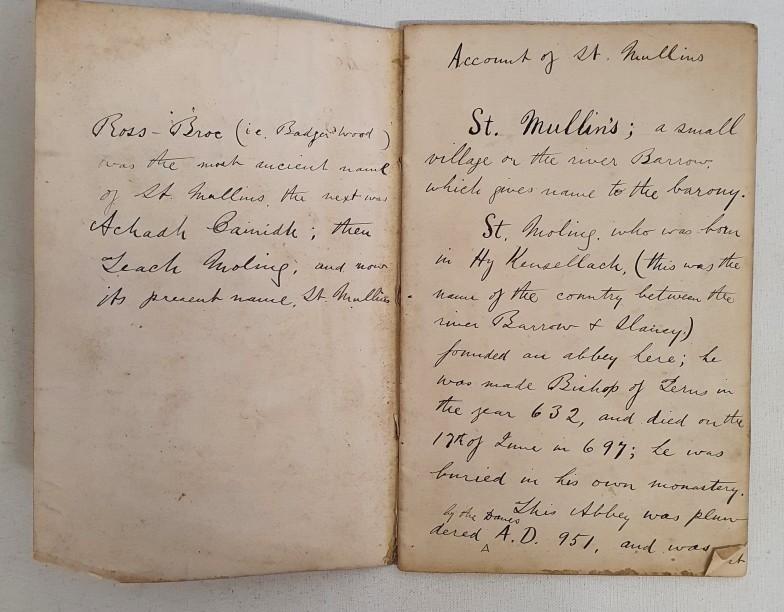 Ross-Broc (i.e. Badger wood)
was the most ancient name
of St. Mullins, the next was
Achadh Cainidh; then
Teach Moling; and now
its present name, St. Mullins
Account of St. Mullins
St. Mullin's; a small
village on the river Barrow,
which gives name to the barony.
St. Moling, who was born
in Hy Kensellach, (this was the
name of the country between the
river Barrow & Slaney)
founded an abbey here; he
was made Bishop of Ferns in
the year 632, and died on the
17th of June in 697; he was
buried in his own monastery.
This Abbey was plun
by the Danes
dered A.D. 951, and was